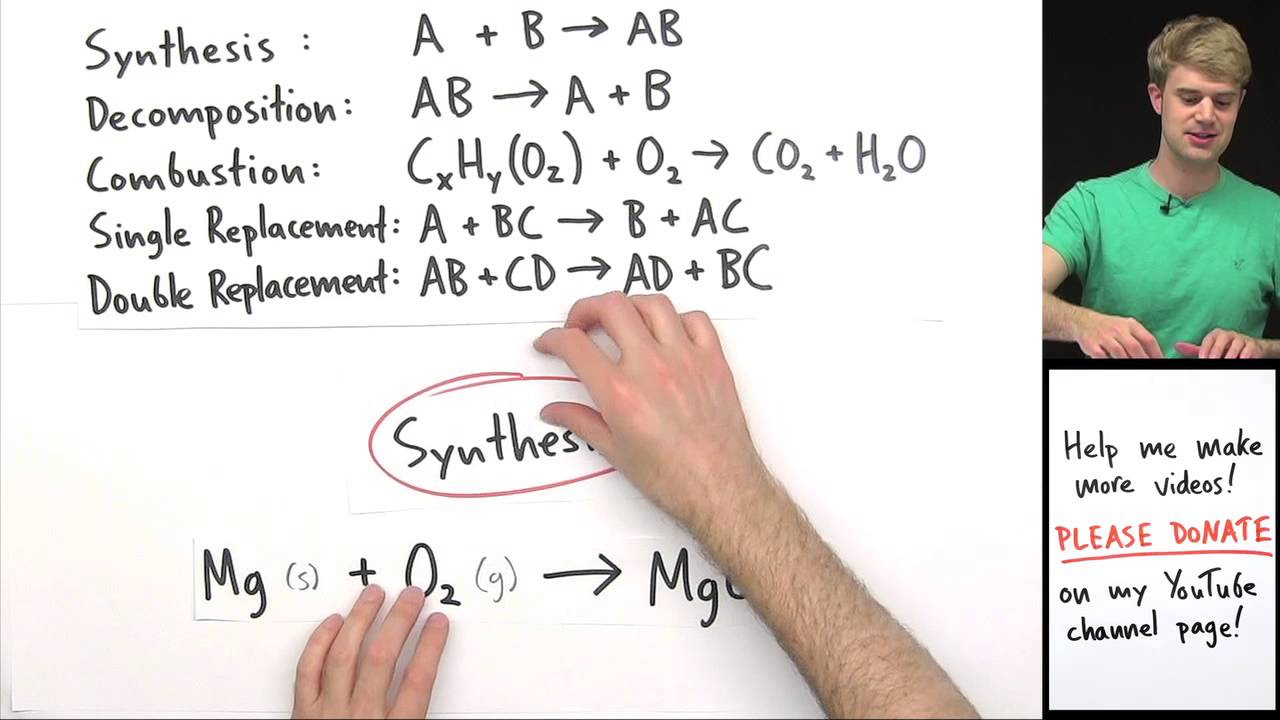 Synthesis : A + B → AB
Decomposition: AB → A + B
Combustion: CₓHᵧ(O₂) + O₂ → CO₂ + H₂O
Single Replacement: A + BC → B + AC
Double Replacement: AB + CD → AD + BC
Mg (s) + O₂ (g) →
Help me make
more videos!
PLEASE DONATE
on my YouTube
channel page!